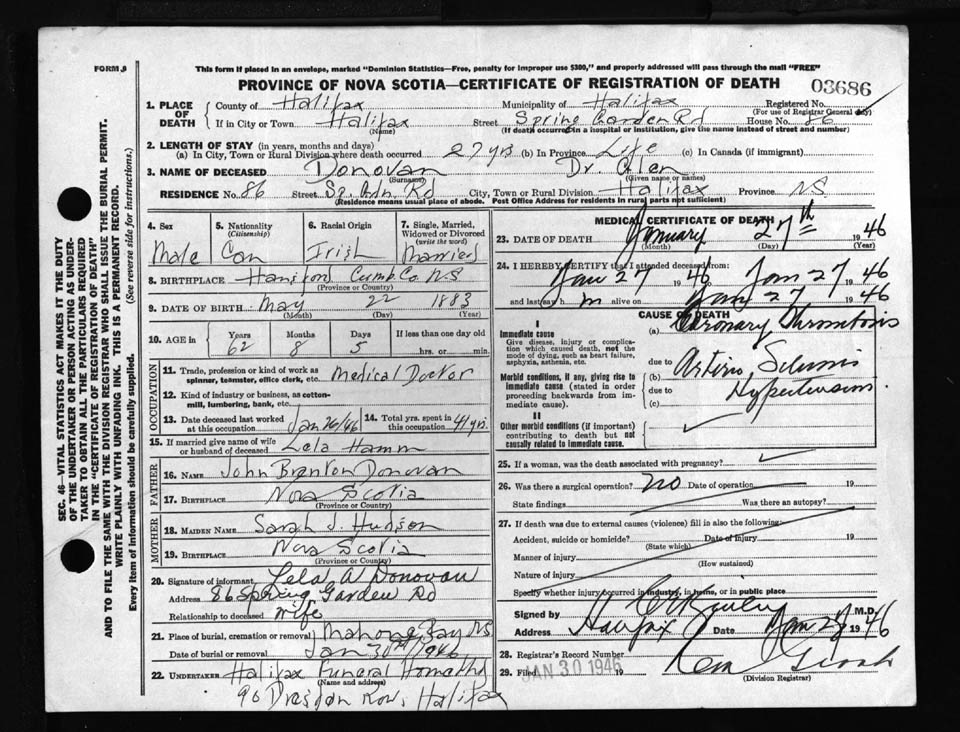 FORM 9
This form if placed in an envelope, marked "Dominion Statistics—Free, penalty for improper use $300," and properly addressed will pass through the mail "FREE"
PROVINCE OF NOVA SCOTIA—CERTIFICATE OF REGISTRATION OF DEATH
03686
1. PLACE OF DEATH
County of Halifax Municipality of Halifax Registered No.
(For use of Registrar General only)
If in City or Town Halifax Street Spring Garden Rd House No. 86
(Name) (If death occurred in a hospital or institution, give the name instead of street and number)
2. LENGTH OF STAY (in years, months and days)
(a) In City, Town or Rural Division where death occurred 27 yrs (b) In Province Life (c) In Canada (if immigrant)
3. NAME OF DECEASED Donovan Dr. Glen
(Surname) (Given name or names)
RESIDENCE No. 86 Street Sp. Gdn. Rd City, Town or Rural Division Halifax Province NS
(Residence means usual place of abode. Post Office Address for residents in rural parts not sufficient)
4. Sex
Male
5. Nationality
(Citizenship)
Can
6. Racial Origin
Irish
7. Single, Married, Widowed or Divorced
(write the word)
Married
8. BIRTHPLACE Cumb. Co. NS
(Province or Country)
9. DATE OF BIRTH May 22 1883
(Month) (Day) (Year)
10. AGE
Years Months Days If less than one day old
62 8 5 hrs. or min.
OCCUPATION
11. Trade, profession or kind of work as spinner, teamster, office clerk, etc. Medical Doctor
12. Kind of industry or business, as cotton-mill, lumbering, bank, etc.
13. Date deceased last worked at this occupation Jan 26/46
14. Total yrs. spent in this occupation 41 yrs.
15. If married give name of wife or husband of deceased Lela Hamm
FATHER
16. NAME John Brenton Donovan
17. BIRTHPLACE Nova Scotia
(Province or Country)
MOTHER
18. MAIDEN NAME Sarah J. Hudson
19. BIRTHPLACE Nova Scotia
(Province or Country)
20. Signature of informant Lela A Donovan
Address 86 Spring Garden Rd
Relationship to deceased Wife
21. Place of burial, cremation or removal Mahone Bay NS
Date of burial or removal Jan 30th/1946
22. UNDERTAKER Halifax Funeral Home Ltd
(Name and address)
90 Dresden Row, Halifax
MEDICAL CERTIFICATE OF DEATH
23. DATE OF DEATH January 27th 1946
(Month) (Day) (Year)
24. I HEREBY CERTIFY that I attended deceased from:
Jan 27 1946 Jan 27 1946
and last saw h m alive on Jan 27 1946
CAUSE OF DEATH
I
Immediate cause
Give disease, injury or complication which caused death, not the mode of dying, such as heart failure, asphyxia, asthenia, etc.
(a) Coronary Thrombosis
due to
Morbid conditions, if any, giving rise to immediate cause (stated in order proceeding backwards from immediate cause).
(b) Arterio Sclerosis
due to Hypertension
(c)
II
Other morbid conditions (if important) contributing to death but not causally related to immediate cause.
25. If a woman, was the death associated with pregnancy?
26. Was there a surgical operation? No Date of operation 19
State findings Was there an autopsy?
27. If death was due to external causes (violence) fill in also the following:
Accident, suicide or homicide? Date of injury 19
(State which)
Manner of injury
(How sustained)
Nature of injury
Specify whether injury occurred in industry, in home, or in public place
Signed by M.D.
Address Halifax Date Jan 29 1946
28. Registrar's Record Number
29. Filed JAN 30 1946 19
(Division Registrar)
SEC. 46—VITAL STATISTICS ACT MAKES IT THE DUTY
OF THE UNDERTAKER OR PERSON ACTING AS UNDERTAKER TO OBTAIN ALL THE PARTICULARS REQUIRED
IN THE "CERTIFICATE OF REGISTRATION OF DEATH"
AND TO FILE THE SAME WITH THE DIVISION REGISTRAR WHO SHALL ISSUE THE BURIAL PERMIT.
WRITE PLAINLY WITH UNFADING INK. THIS IS A PERMANENT RECORD.
Every item of information should be carefully supplied. (See reverse side for instructions.)